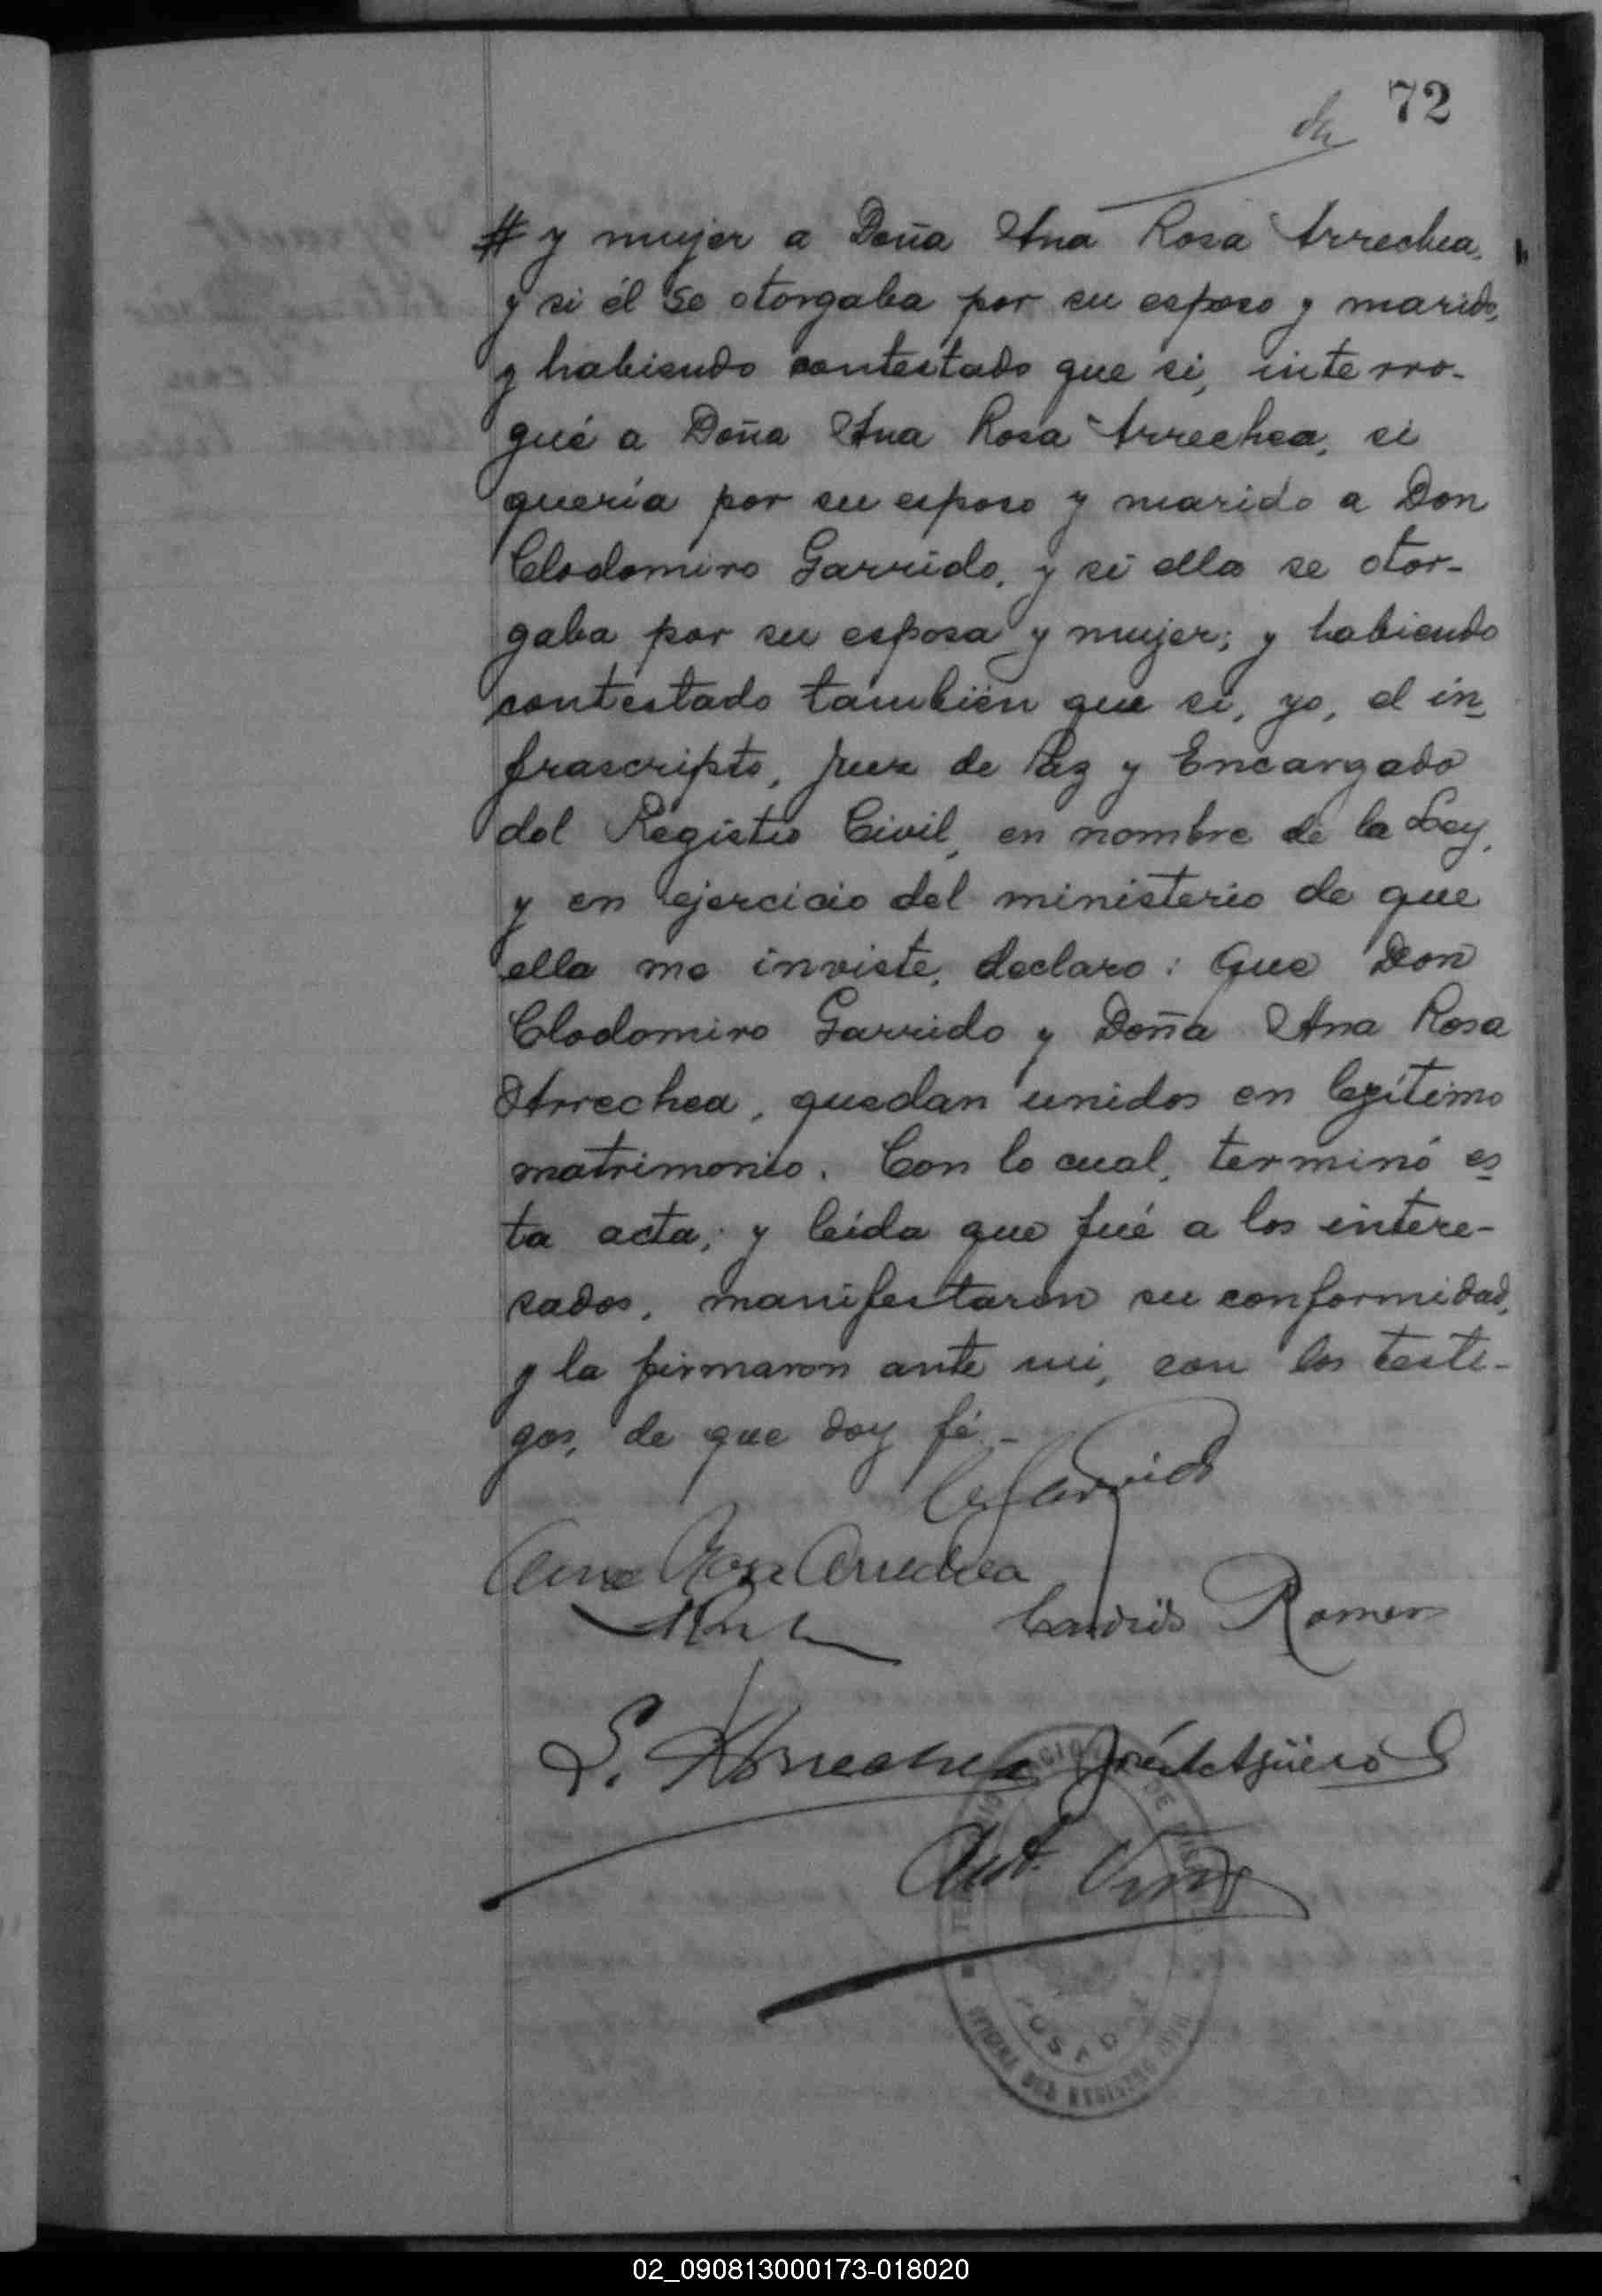 72
# y mujer a Doña Ana Rosa Arrechea,
y si él se otorgaba por su esposo y marido,
y habiendo contestado que si, interro-
gué a Doña Ana Rosa Arrechea, si
quería por su esposo y marido a Don
Clodomiro Garrido, y si ella se otor-
gaba por su esposa y mujer; y habiendo
contestado también que si, yo, el in
frascripto, Juez de Paz y Encargado
del Registro Civil, en nombre de la Ley,
y en ejercicio del ministerio de que
ella me inviste, declaro: Que Don
Clodomiro Garrido y Doña Ana Rosa
Arrechea, quedan unidos en legítimo
matrimonio. Con lo cual, terminó es
ta acta; y leída que fué a los intere-
sados, manifestaron su conformidad,
y la firmaron ante mi, con los testi-
gos, de que doy fé.-
Garrido
Ana Rosa Arrechea
Romero
S. Arrechea
Agüero
OFICINA DEL REGISTRO CIVIL
02_090813000173-018020